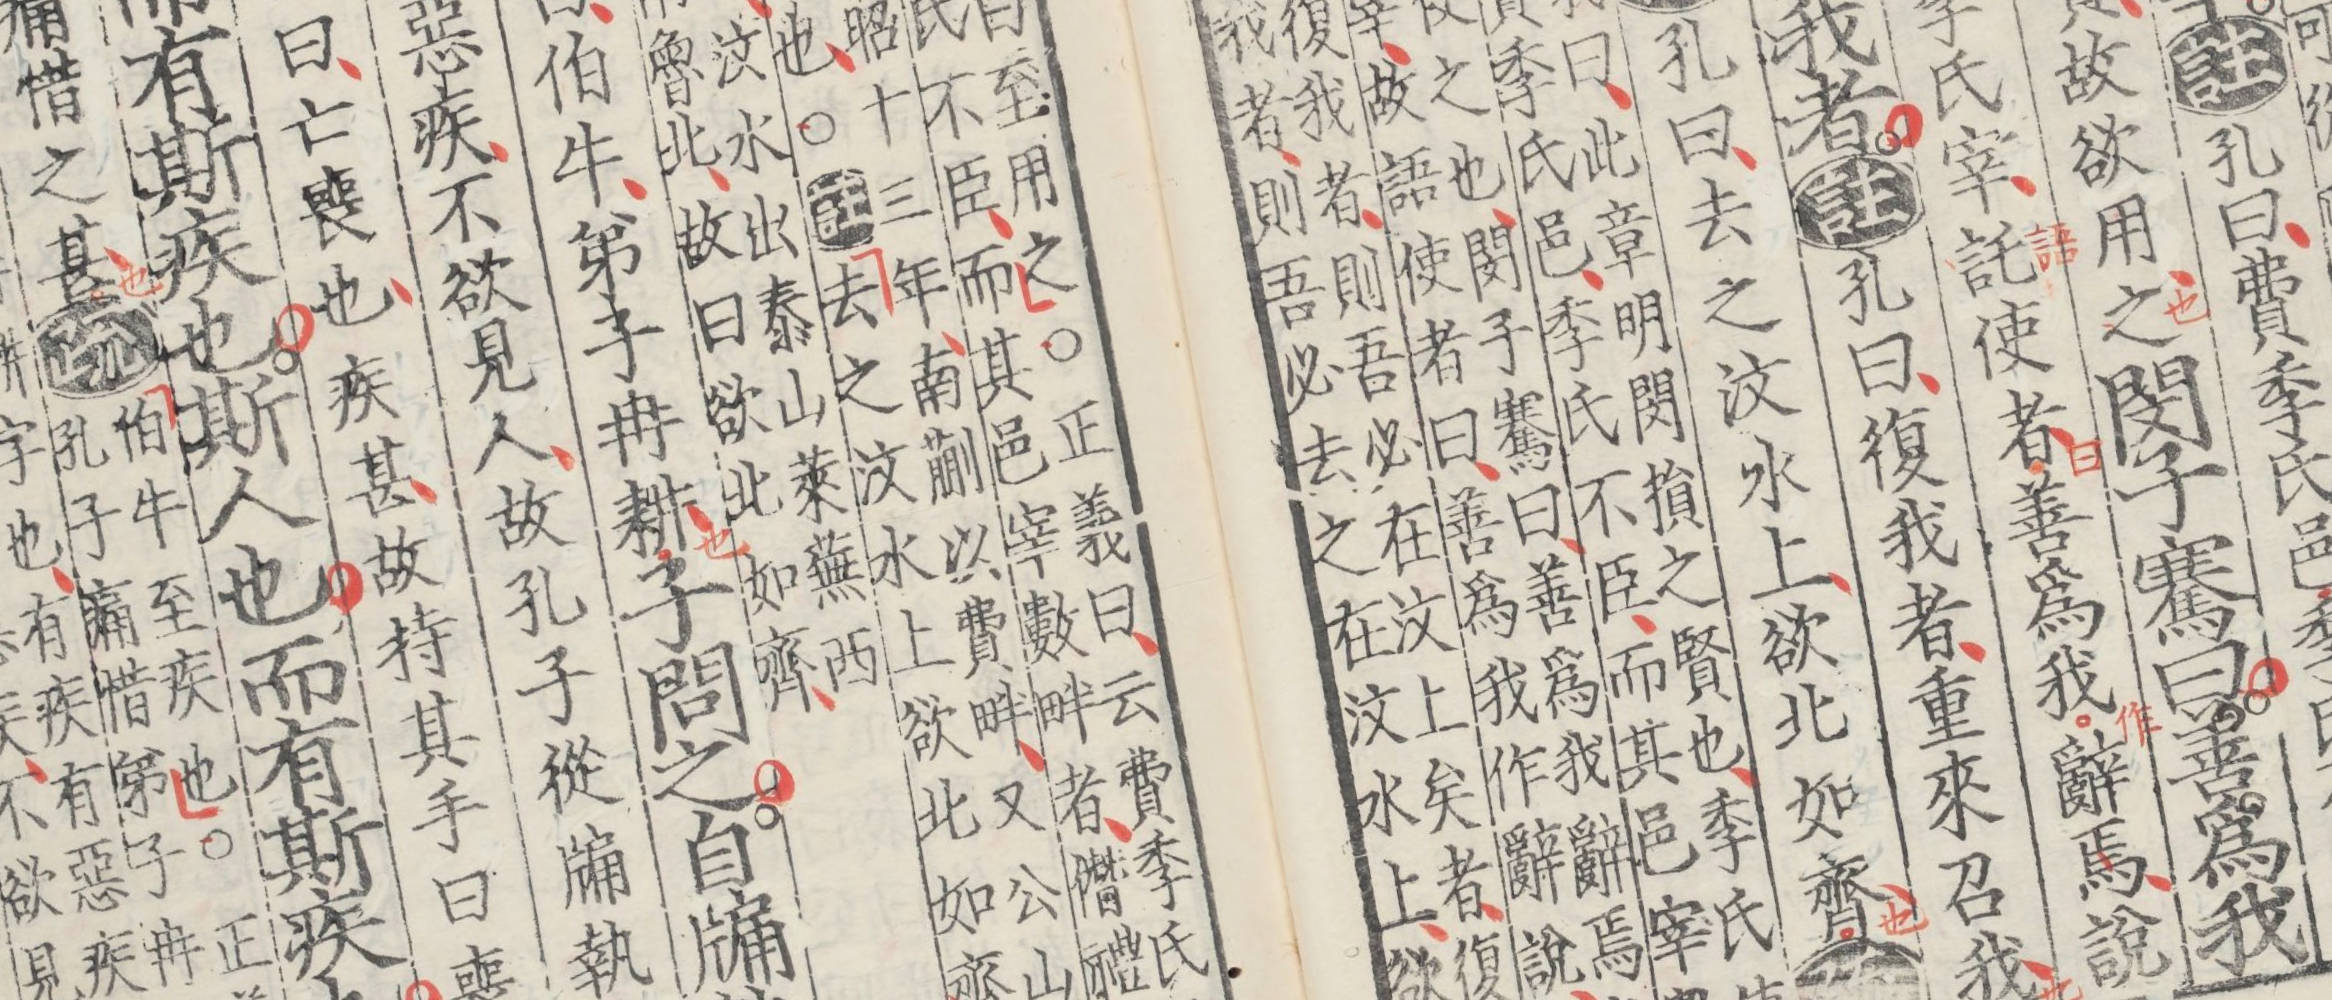 註孔曰費季氏邑季氏
故欲用之也閔子騫曰善爲我
季氏宰託語使者曰善爲我作辭焉說
我者註孔曰復我者重來召我也
孔曰去之汶水上欲北如齊也疏
曰此章明閔損之賢也季氏
季氏邑季氏不臣而其邑宰
使之也閔子騫曰善爲我辭焉
宰故語使者曰善爲我作辭說
復我者則吾必在汶上矣者復
我者則吾必去之在汶水上欲
至用之○正義曰云費季氏
氏不臣而其邑宰數畔者僭禮
昭十三年南蒯以費畔又公山
也○註去之汶水上欲北如齊
汶水出泰山萊蕪西
魯北故曰欲北如齊
伯牛弟子冉耕也子問之自牖
惡疾不欲見人故孔子從牖執
曰亡喪也疾甚故持其手曰喪
而有斯疾也斯人也而有斯疾
痛惜之甚也疏伯牛至疾也○正
孔子痛惜弟子冉
字也有疾有惡疾
疾不欲見